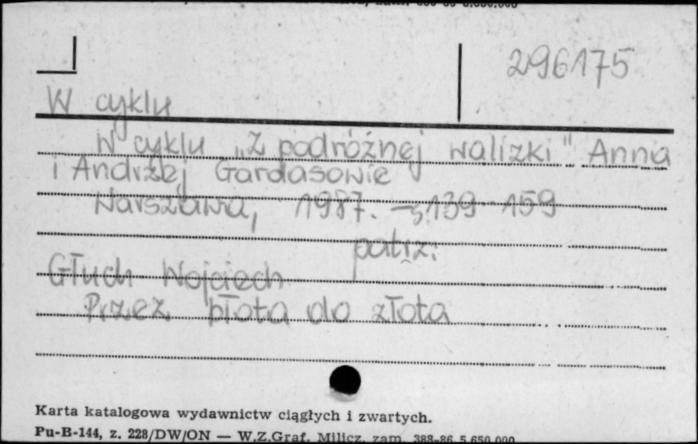 296175
W cyklu
W cyklu „Z podróżnej walizki" Anna
i Andrzej Gardasowie
Warszawa, 1987. – s. 139-159
patrz:
Głuch Wojciech
Przez płota do złota
Karta katalogowa wydawnictw ciągłych i zwartych.
Pu-B-144, z. 228/DW/ON — W.Z.Graf. Milicz, zam. 388-86 5.650.000